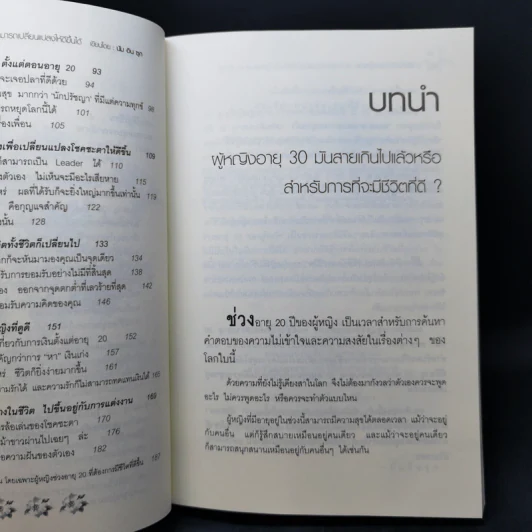 มารถเปลี่ยนแปลงให้ดีขึ้นได้ เขียนโดย : นัม อิน ซุก
ตั้งแต่ตอนอายุ 20 93
จะเจอปลาที่ดีด้วย 94
สุข มากกว่า 'นักปรัชญา' ที่มีแต่ความทุกข์ 98
รถหยุดโลกนี้ได้ 101
รื่องเพื่อน 105
งเพื่อเปลี่ยนแปลงโชคชะตาให้ดีขึ้น 109
ก็สามารถเป็น Leader ได้ 110
ตัวเอง ไม่เห็นจะมีอะไรเสียหาย 115
ร่ ผลที่ได้รับก็จะยิ่งใหญ่มากขึ้นเท่านั้น
คือกุญแจสำคัญ 122
งนั้น 128
ชีวิตทั้งชีวิตก็เปลี่ยนไป 133
กก็จะหันมามองคุณเป็นจุดเดียว 134
รับการยอมรับอย่างไม่มีที่สิ้นสุด 138
อง ออกจากจุดตกต่ำที่เลวร้ายที่สุด 142
อมรับความคิดของคุณ 146
ญิงที่ดูดี 151
เกี่ยวกับการเงินตั้งแต่อายุ 20 152
คัญกว่าการ "หา" เงินเก่ง 157
ร่ ชีวิตก็ยิ่งง่ายมากขึ้น 161
วามรักได้ และความรักก็ไม่สามารถทดแทนเงินได้ 165
่างในชีวิต ไปขึ้นอยู่กับการแต่งงาน 169
การล้อเล่นของโชคชะตา 170
ม้าขาวผ่านไปเฉยๆ ล่ะ 176
อความฝันของตัวเอง 182
น โดยเฉพาะผู้หญิงช่วงอายุ 20 ที่ต้องการมีชีวิตที่ดีขึ้น
บทนำ
ผู้หญิงอายุ 30 มันสายเกินไปแล้วหรือ
สำหรับการที่จะมีชีวิตที่ดี ?
ช่วงอายุ 20 ปีของผู้หญิง เป็นเวลาสำหรับการค้นหา
คำตอบของความไม่เข้าใจและความสงสัยในเรื่องต่างๆ ของ
โลกใบนี้
ด้วยความที่ยังไม่รู้เดียงสาในโลก จึงไม่ต้องมากังวลว่าตัวเองควรจะพูด
อะไร ไม่ควรพูดอะไร หรือควรจะทำตัวแบบไหน
ผู้หญิงที่มีอายุอยู่ในช่วงนี้สามารถมีความสุขได้ตลอดเวลา แม้ว่าจะอยู่
กับคนอื่น แต่ก็รู้สึกสบายเหมือนอยู่คนเดียว และแม้ว่าจะอยู่คนเดียว
ก็สามารถสนุกสนานเหมือนอยู่กับคนอื่นๆ ได้เช่นกัน